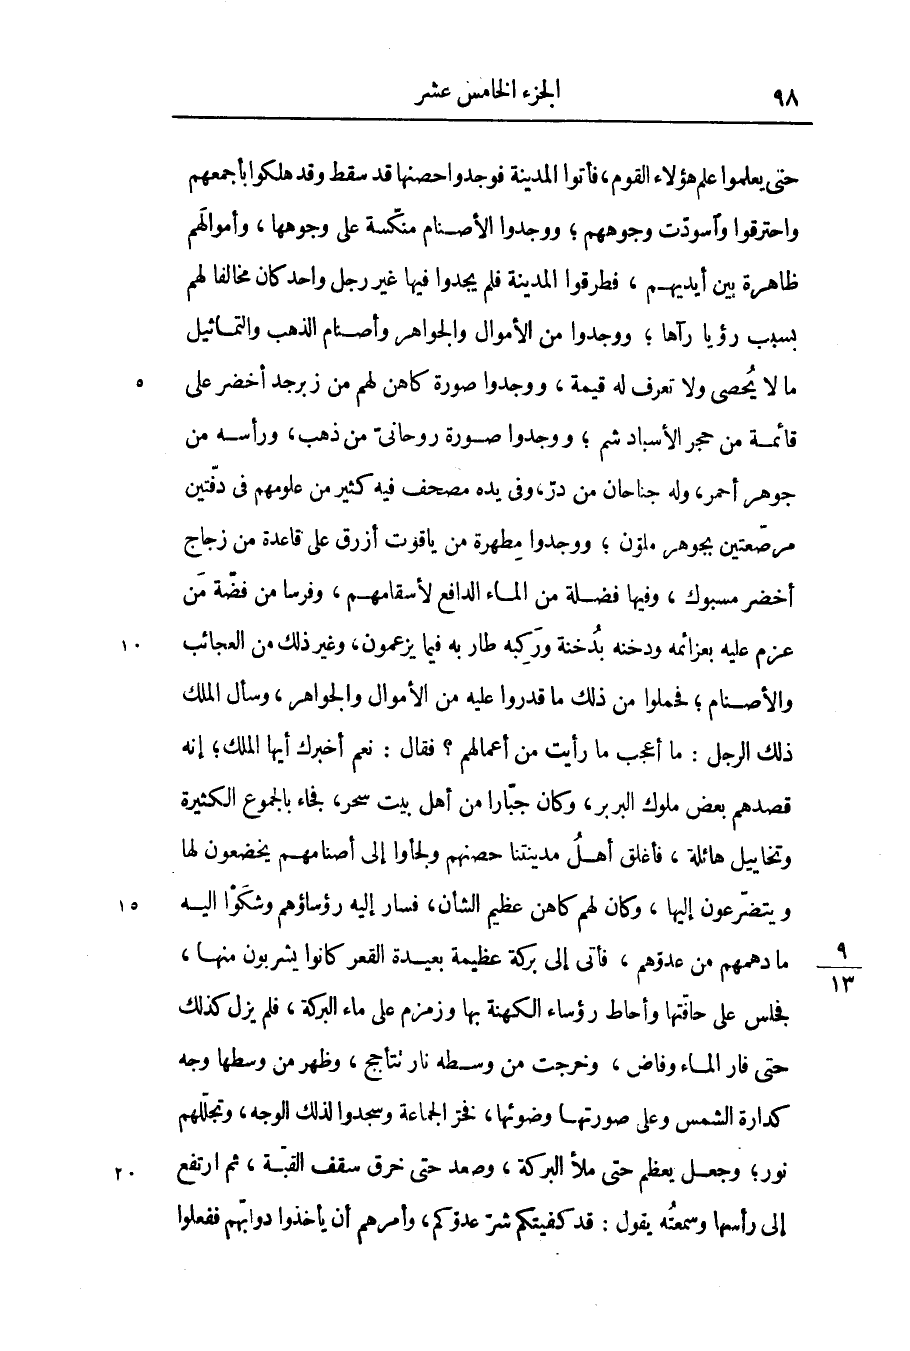 ٩٨
الجزء الخامس عشر
حتى يعلموا علم هؤلاء القوم، فأتوا المدينة فوجدوا حصنها قد سقط وقد هلكوا بأجمعهم
واحترقوا وآسودّت وجوههم؛ ووجدوا الأصنام منكّسة على وجوهها، وأموالَهم
ظاهرة بين أيديهم، فطرقوا المدينة فلم يجدوا فيها غير رجل واحد كان مخالفا لهم
بسبب رؤيا رآها؛ ووجدوا من الأموال والجواهر وأصنام الذهب والتماثيل
ما لا يُحصى ولا تعرف له قيمة، ووجدوا صورة كاهن لهم من زبرجد أخضر على
٥
قائمة من حجر الأسباد شم؛ ووجدوا صورة روحانىّ من ذهب، ورأسه من
جوهر أحمر، وله جناحان من درّ، وفى يده مصحف فيه كثير من علومهم فى دفّتين
مرصّعتين بجوهر ملوّن؛ ووجدوا مِطهرة من ياقوت أزرق على قاعدة من زجاج
أخضر مسبوك، وفيها فضلة من الماء الدافع لأسقامهم، وفرسا من فضّة مَن
عزم عليه بعزائمه ودخنه بدُخنة ورَكِبه طار به فيما يزعمون، وغير ذلك من العجائب
١٠
والأصنام؛ فحملوا من ذلك ما قدروا عليه من الأموال والجواهر، وسأل الملك
ذلك الرجل: ما أعجب ما رأيت من أعمالهم؟ فقال: نعم أخبرك أيها الملك؛ إنه
قصدهم بعض ملوك البربر، وكان جبّارا من أهل بيت سحر، فجاء بالجموع الكثيرة
وتخاييل هائلة، فأغلق أهلُ مدينتنا حصنهم ولجأوا إلى أصنامهم يخضعون لها
ويتضرّعون إليها، وكان لهم كاهن عظيم الشأن، فسار إليه رؤساؤهم وشكَوْا اليه
١٥
ما دهمهم من عدوّهم، فأتى إلى بركة عظيمة بعيدة القعر كانوا يشربون منها،
٩
١٣
فجلس على حافّتها وأحاط رؤساء الكهنة بها وزمزم على ماء البركة، فلم يزل كذلك
حتى فار الماء وفاض، وخرجت من وسطه نار تتأجج، وظهر من وسطها وجه
كدارة الشمس وعلى صورتها وضوئها، فخرّ الجماعة وسجدوا لذلك الوجه، وتجلّلهم
نور؛ وجعل يعظم حتى ملأ البركة، وصعد حتى خرق سقف القبّة، ثم ارتفع
٢٠
إلى رأسها وسمعتُه يقول: قد كفيتكم شرّ عدوّكم، وأمرهم أن يأخذوا دوابّهم ففعلوا